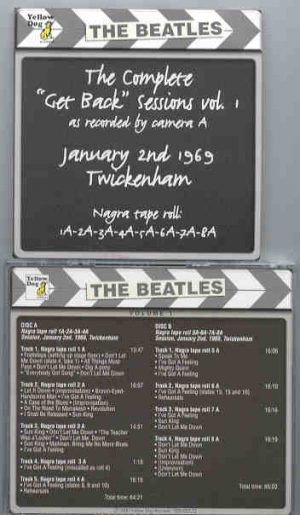 Yellow
Dog
THE BEATLES
The Complete
"Get Back" Sessions vol. 1
as recorded by camera A
January 2nd 1969
Twickenham
Nagra tape roll:
1A-2A-3A-4A-5A-6A-7A-8A
Yellow
Dog
THE BEATLES
VOLUME 1
DISC A
Nagra tape roll 1A-2A-3A-4A
Session, January 2nd, 1969, Twickenham
Track 1. Nagra tape roll 1 A
• Don't Let
Me Down • All Things Must
Pass • Don't Let Me Down • Dig A Pony
• "Everybody Got Song" • Don't Let Me Down
Track 2. Nagra tape roll 2 A
• Let It Down • (improvisation) • Brown-Eyed
Handsome Man • I've Got A Feeling
• A Case of the Blues • (improvisation)
• On The Road To Marrakesh • Revolution
• I Shall Be Released • Sun King
Track 3. Nagra tape roll 3 A
• Sun King • Don't Let Me Down • "The Teacher
Was a Lookin'" • Don't Let Me Down
• Sun King • Mailman, Bring Me No More Blues
• I've Got A Feeling
Track 4. Nagra tape roll 3 A 1:18
• I've Got A Feeling
Track 5. Nagra tape roll 4 A
• Rehearsals
Total time:
DISC B
Nagra tape roll 5A-6A-7A-8A
Session, January 2nd, 1969, Twickenham
Track 1. Nagra tape roll 5 A
• Speak To Me
• I've Got A Feeling
• Mighty Quinn
• I've Got A Feeling
Track 2. Nagra tape roll 6 A
• I've Got A Feeling
• Rehearsals
Track 3. Nagra tape roll 7 A
• I've Got A Feeling
• Sun King
• Don't Let Me Down
Track 4. Nagra tape roll 8 A
• Don't Let Me Down
• Sun King
• Don't Let Me Down
• (improvisation)
• (Unknown)
• Don't Let Me Down
Total time: